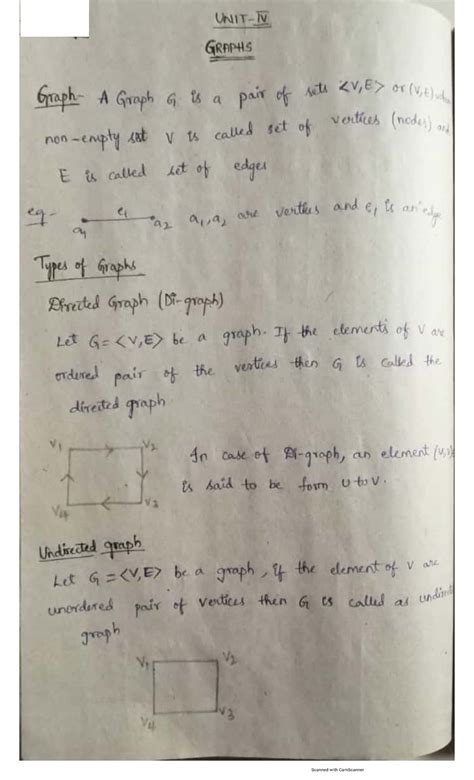 UNIT-IV
GRAPHS
Graph- A Graph G is a pair of sets <V,E> or (V,E) where
non-empty set V is called set of vertices (nodes) and
E is called set of edges
eg- e1 a1 a2 a1, a2 are vertices and e1 is an edge
Types of Graphs
Directed Graph (Di-graph)
Let G= <V,E> be a graph. If the elements of V are
ordered pair of the vertices then G is called the
directed graph.
V1 V2
In case of Di-graph, an element (u,v)
is said to be form u to v.
V4 V3
Undirected graph
Let G = <V,E> be a graph, if the element of V are
unordered pair of vertices then G is called as undirected
graph
V1 V2
V4 V3
Scanned with CamScanner